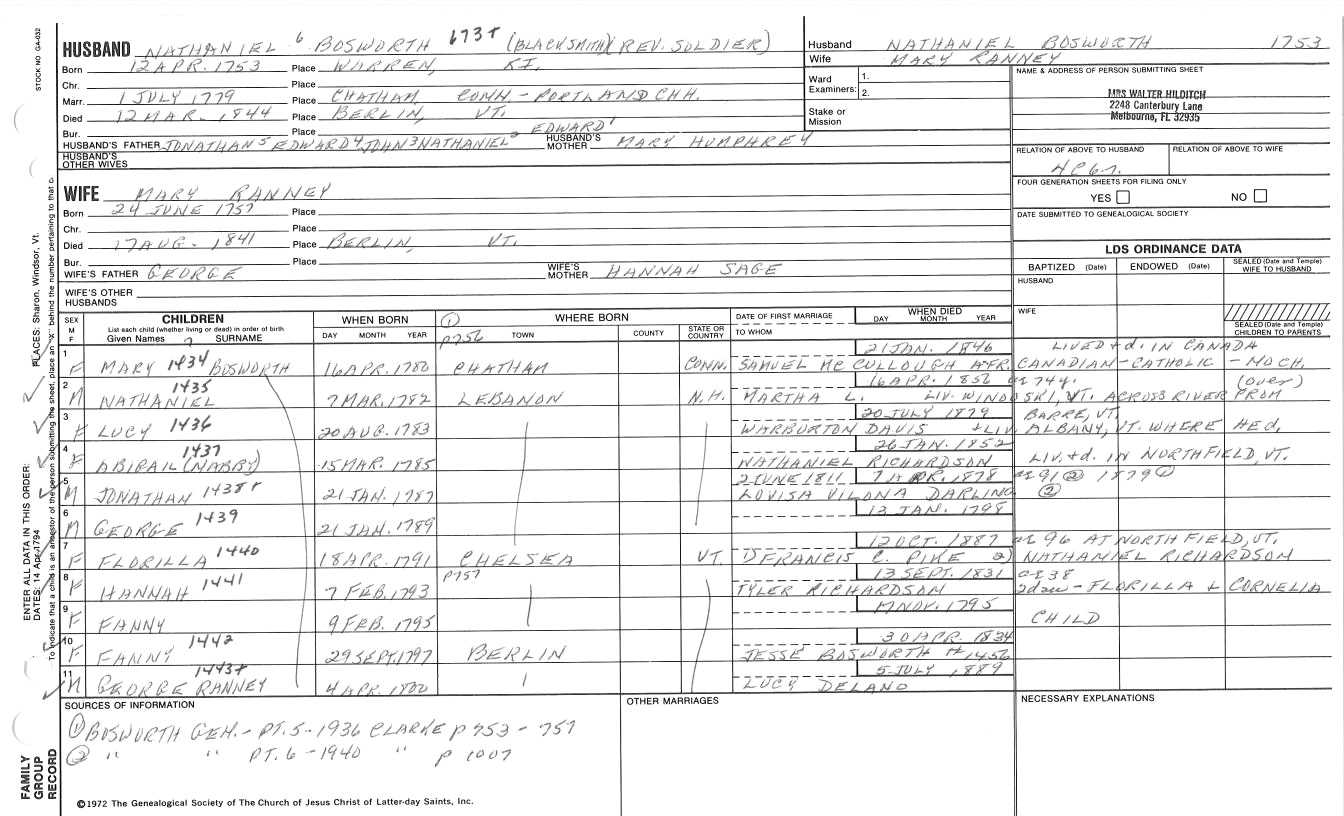 STOCK NO GA-032
HUSBAND NATHANIEL 6 BOSWORTH 673+ (BLACKSMITH)(REV. SOLDIER)
Born 12 APR. 1753 Place WARREN, R.I.
Chr. Place
Marr. 1 JULY 1779 Place CHATHAM, CONN - PORTLAND CHH.
Died 12 MAR. 1844 Place BERLIN, VT.
Bur. Place
HUSBAND'S FATHER JONATHAN 5 EDWARD 4 JOHN 3 NATHANIEL 2 EDWARD 1 HUSBAND'S MOTHER MARY HUMPHREY
HUSBAND'S OTHER WIVES
Husband NATHANIEL BOSWORTH 1753
Wife MARY RANNEY
Ward Examiners: 1.
2.
Stake or Mission
NAME & ADDRESS OF PERSON SUBMITTING SHEET
MRS WALTER HILDITCH
2248 Canterbury Lane
Melbourne, FL 32935
RELATION OF ABOVE TO HUSBAND RELATION OF ABOVE TO WIFE
FOUR GENERATION SHEETS FOR FILING ONLY
YES NO
DATE SUBMITTED TO GENEALOGICAL SOCIETY
WIFE MARY RANNEY
Born 24 JUNE 1757 Place
Chr. Place
Died 17 AUG. 1841 Place BERLIN, VT.
Bur. Place
WIFE'S FATHER GEORGE WIFE'S MOTHER HANNAH SAGE
WIFE'S OTHER HUSBANDS
LDS ORDINANCE DATA
BAPTIZED (Date) ENDOWED (Date) SEALED (Date and Temple) WIFE TO HUSBAND
HUSBAND
WIFE
SEALED (Date and Temple) CHILDREN TO PARENTS
SEX M F CHILDREN List each child (whether living or dead) in order of birth Given Names 7 SURNAME
WHEN BORN DAY MONTH YEAR
① P756 WHERE BORN TOWN COUNTY STATE OR COUNTRY
DATE OF FIRST MARRIAGE TO WHOM
WHEN DIED DAY MONTH YEAR
21 JAN. 1846 LIVED + d. IN CANADA
1 F MARY 1434 BOSWORTH 16 APR. 1780 CHATHAM CONN. SAMUEL MC CULLOUGH A FR. CANADIAN-CATHOLIC - MO CH.
16 APR. 1856 ae 74y. (over)
2 M NATHANIEL 1435 7 MAR. 1782 LEBANON N.H. MARTHA L. LIV. WINOOSKI, VT. ACROSS RIVER FROM
20 JULY 1879 BARRE, VT.
3 F LUCY 1436 20 AUG. 1783 WARBURTON DAVIS + LIV. ALBANY, VT. WHERE HE d.
26 JAN. 1852
4 F ABIRAIL (NABBY) 1437 15 MAR. 1785 NATHANIEL RICHARDSON LIV. + d. IN NORTHFIELD, VT.
2 JUNE 1811 7 APR. 1878 ae 91 ② 1879 ①
5 M JONATHAN 1438+ 21 JAN. 1787 LOVISA VILONA DARLING ②
13 JAN. 1798
6 M GEORGE 1439 21 JAN. 1789
12 OCT. 1887 ae 96 AT NORTHFIELD, VT.
7 F FLORILLA 1440 18 APR. 1791 CHELSEA VT. 1) FRANCIS C. PIKE 2) NATHANIEL RICHARDSON
P757 13 SEPT. 1831 ae 38
8 F HANNAH 1441 7 FEB. 1793 TYLER RICHARDSON 2 dau - FLORILLA + CORNELIA
17 NOV. 1795
9 F FANNY 9 FEB. 1795 CHILD
30 APR. 1834
10 F FANNY 1442 29 SEPT. 1797 BERLIN JESSE BOSWORTH # 1456
5 JULY 1889
11 M GEORGE RANNEY 1443+ 4 APR. 1800 LUCY DELANO
SOURCES OF INFORMATION
① BOSWORTH GEN. - PT. 5 - 1936 CLARKE P 753 - 757
② " " PT. 6 - 1940 " P 1007
OTHER MARRIAGES
NECESSARY EXPLANATIONS
©1972 The Genealogical Society of The Church of Jesus Christ of Latter-day Saints, Inc.
FAMILY GROUP RECORD
ENTER ALL DATA IN THIS ORDER:
DATES: 14 Apr 1794
PLACES: Sharon, Windsor, Vt.
To indicate that a child is an ancestor of the person submitting the sheet, place an "X" behind the number pertaining to that c